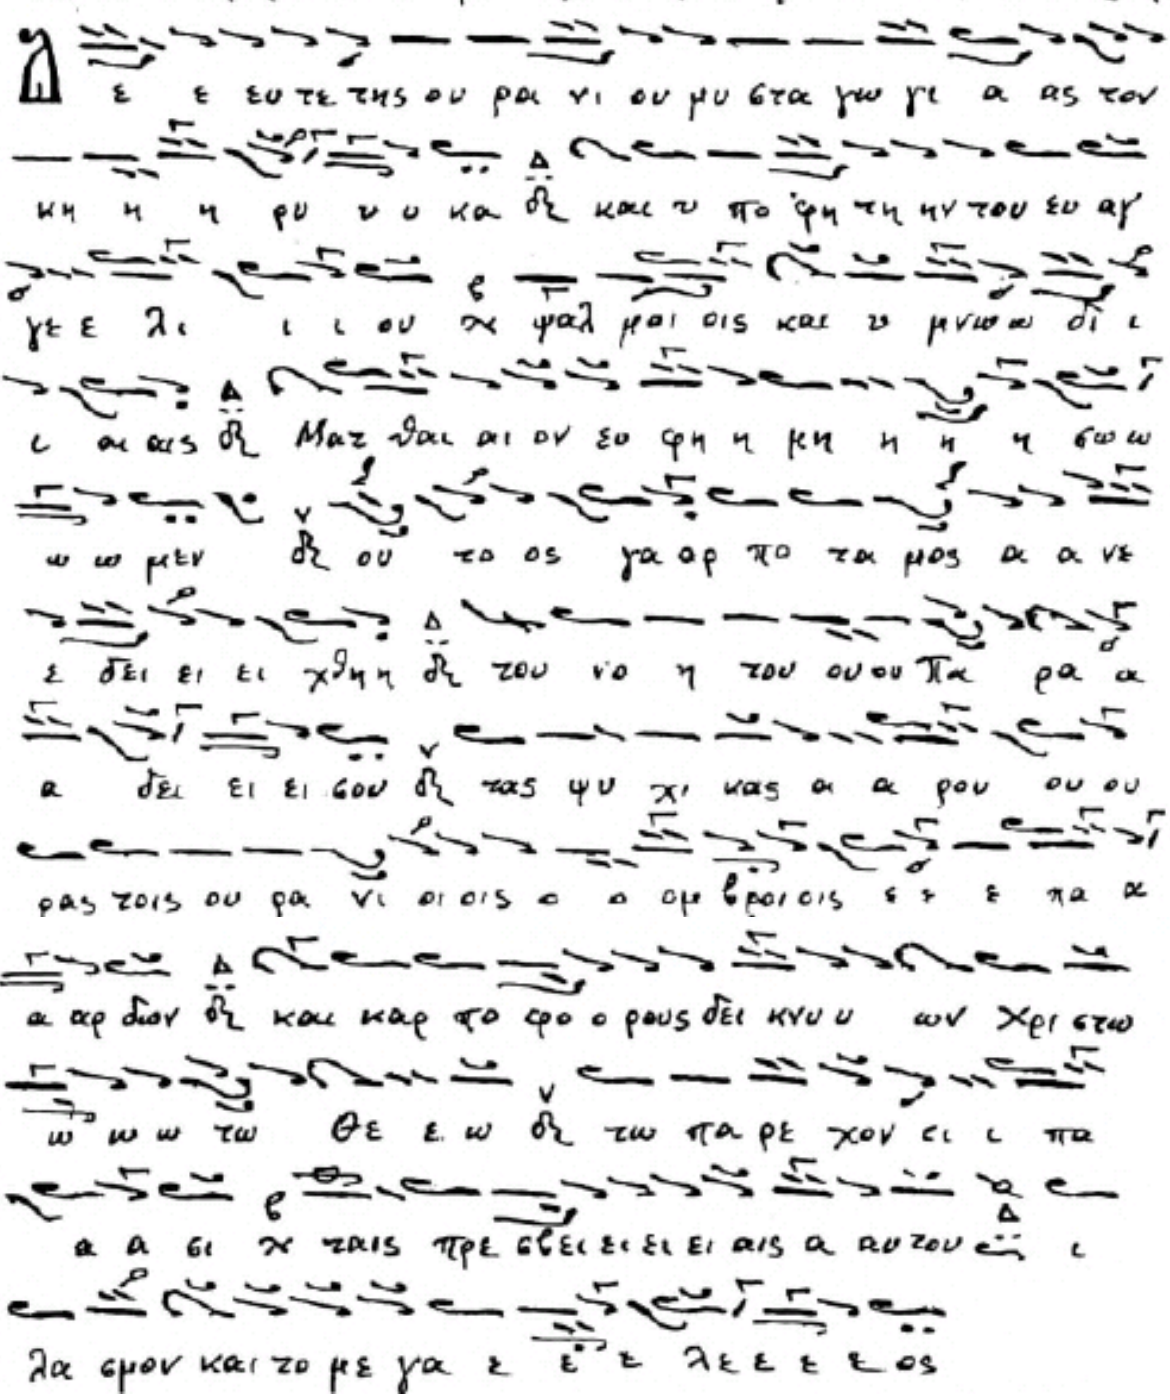 Δ ε ε ευ τε της ου ρα νι ου μυ στα γω γι α ας τον
κη η η ρυ υ υ κα και υ πο φη τη ην του ευ αγ
γε ε λι ι ι ου ψαλ μοι οις και υ μνω ω δι ι
ι αι αις Ματ θαι αι ον ευ φη η μη η η η σω ω
ω ω μεν ου το ος γα αρ πο τα μος α α νε
ε δει ει ει χθη η του νο η του ου ου Πα ρα α
α δει ει ει σου τας ψυ χι κας α α ρου ου ου
ρας τοις ου ρα νι οι οις ο ο ομ βροι οις ε ε ε πα α
α αρ δων και καρ πο φο ο ρους δει κνυ υ ων Χρι στω
ω ω ω τω Θε ε ω τω πα ρε χον τι ι πα
α α σι ταις πρε σβει ει ει ει αις α αυ του ι
λα σμον και το με γα ε ε ε λε ε ε ε ος